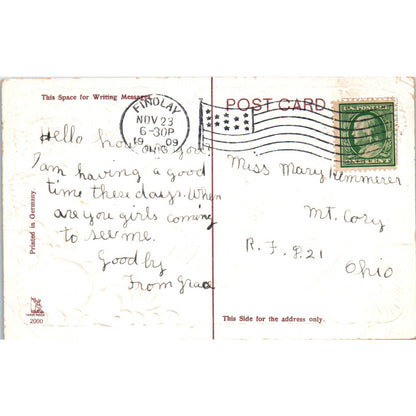 This Space for Writing Messages
POST CARD
FINDLAY
NOV 23
6-30P
1909
OHIO
U.S. POSTAGE
ONE CENT
Hello how are you?
I am having a good
time these days. When
are you girls coming
to see me.
Goodby
From Grace
Miss Mary Kemmerer
Mt. Cory
R. F. D. 21
Ohio
Printed in Germany.
2000
This Side for the address only.